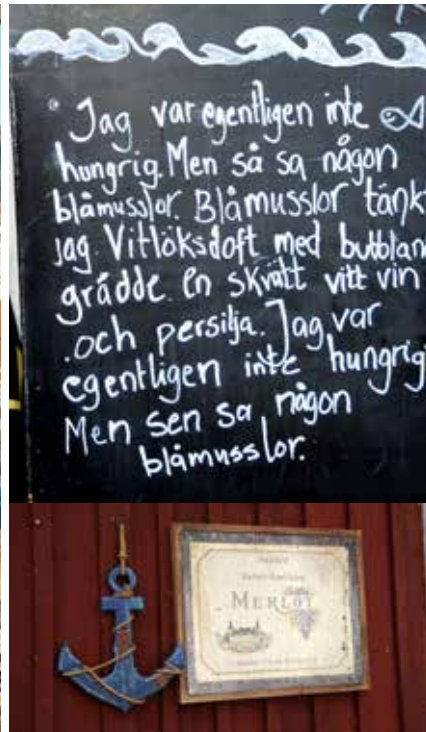 Jag var egentligen inte
hungrig. Men så sa någon
blåmusslor. Blåmusslor tänkt
jag. Vitlöksdoft med bubblan
grädde. En skvätt vitt vin
.och persilja. Jag var
egentligen inte hungrig
Men sen sa någon
blåmusslor.
MERLOT